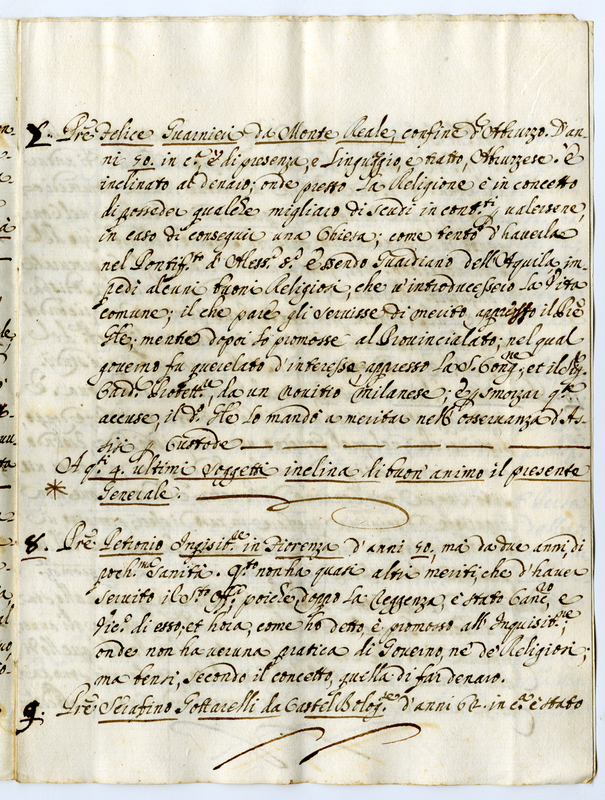 Prẽ Felice Guarnieri da Monte Reale, confine d'Abruzzo. D'an-
ni 50. in c.ª di presenza, e Linguggio, e tratto, Abruzzese. È
inclinato al denaro; onde presso La Religione è in concetto
di posseder qualche migliaro di Scudi in cont.ti valersene,
in caso di conseguir una Chiesa; come tentò d'haverla
nel Pontif.to d'Aless.º 8.º Essendo Guardiano dell'Aquila, im-
pedì alcuni buoni Religiosi, che v'introducessero La Vita
comune; il che pare gli servisse di merito appresso il Prẽ
Gle; mentre dopoi Lo promosse al Provincialato; nel qual
governo fu querelato d'interesse appresso La S. Cong.ne, et il
Card. Protett.re, da un Novitio Milanese; e smorzar q.te
accuse, il d.º Gle Lo mandò a meritar nell'osservanza d'As-
sisi Custode
A q.ti 4. ultimi soggetti inclina di buon'animo il presente
* Generale.
8. Prẽ Petronio Inqisit.re in Fiorenza d'anni 50, mà da due anni di
poch.ma Sanità. Q.to non ha quasi altri meriti, che d'haver
servito il S.to Off.º; poiche doppo La Reggenza, è stato Canc.ro, e
Vic.º di esso, et hora, come hò detto, è promosso all'Inquisit.ne,
onde non ha veruna pratica di Governo, nè de Religiosi;
ma bensì, secondo il concetto, quella di far denaro.
9. Prẽ Serafino Gottarelli da Castel Bolog.se d'anni 62. in c.ª è stato